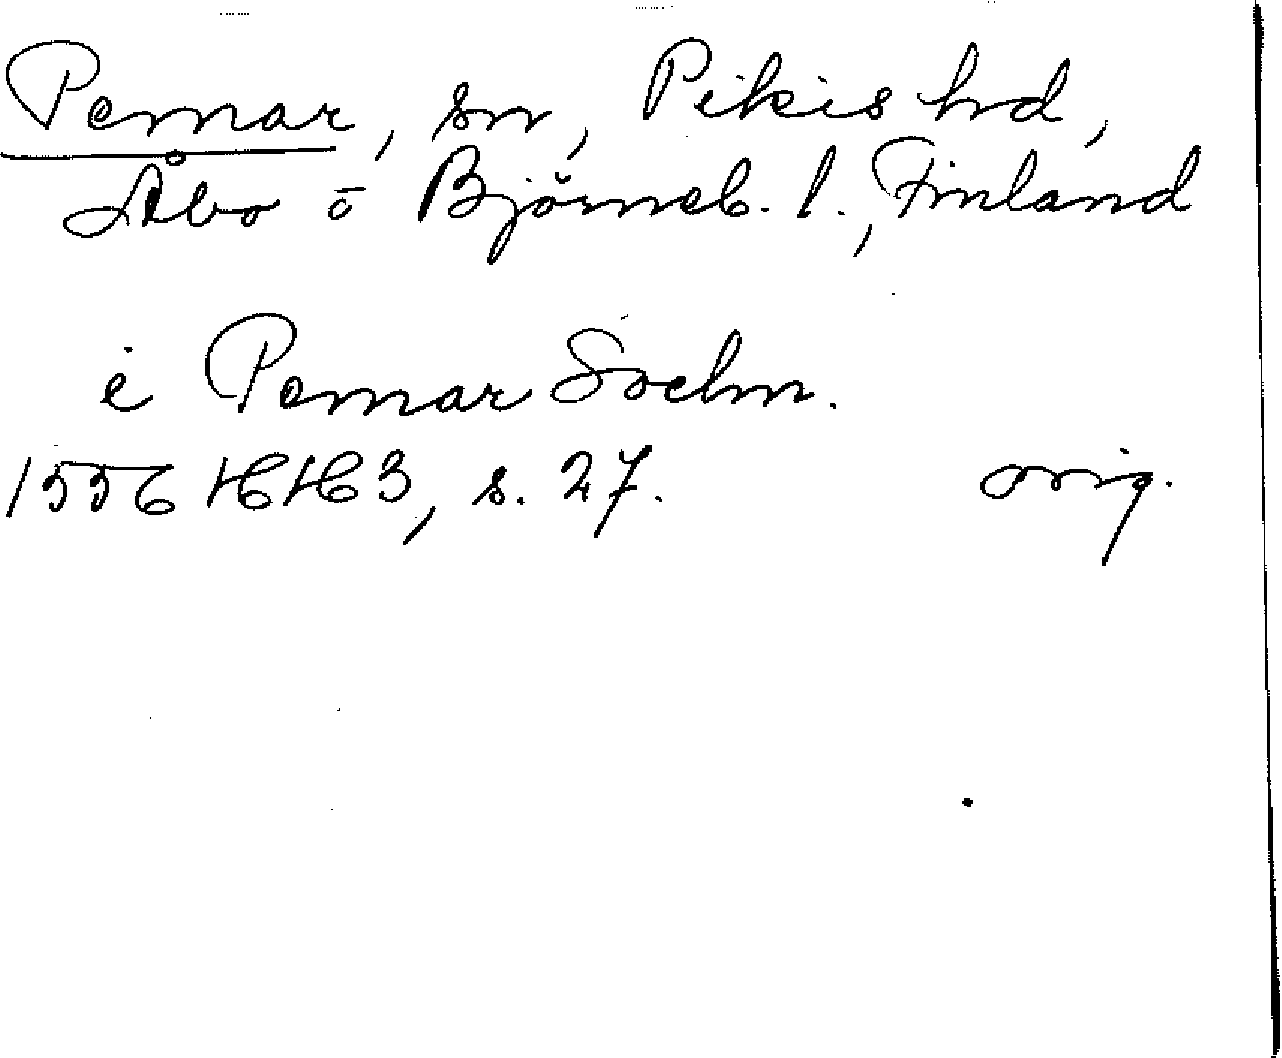 Pemar, sn, Pikis hd,
Åbo o Björneb. l., Finland
i Pemar Sochn.
1556 16/6 3, s. 27. orig.